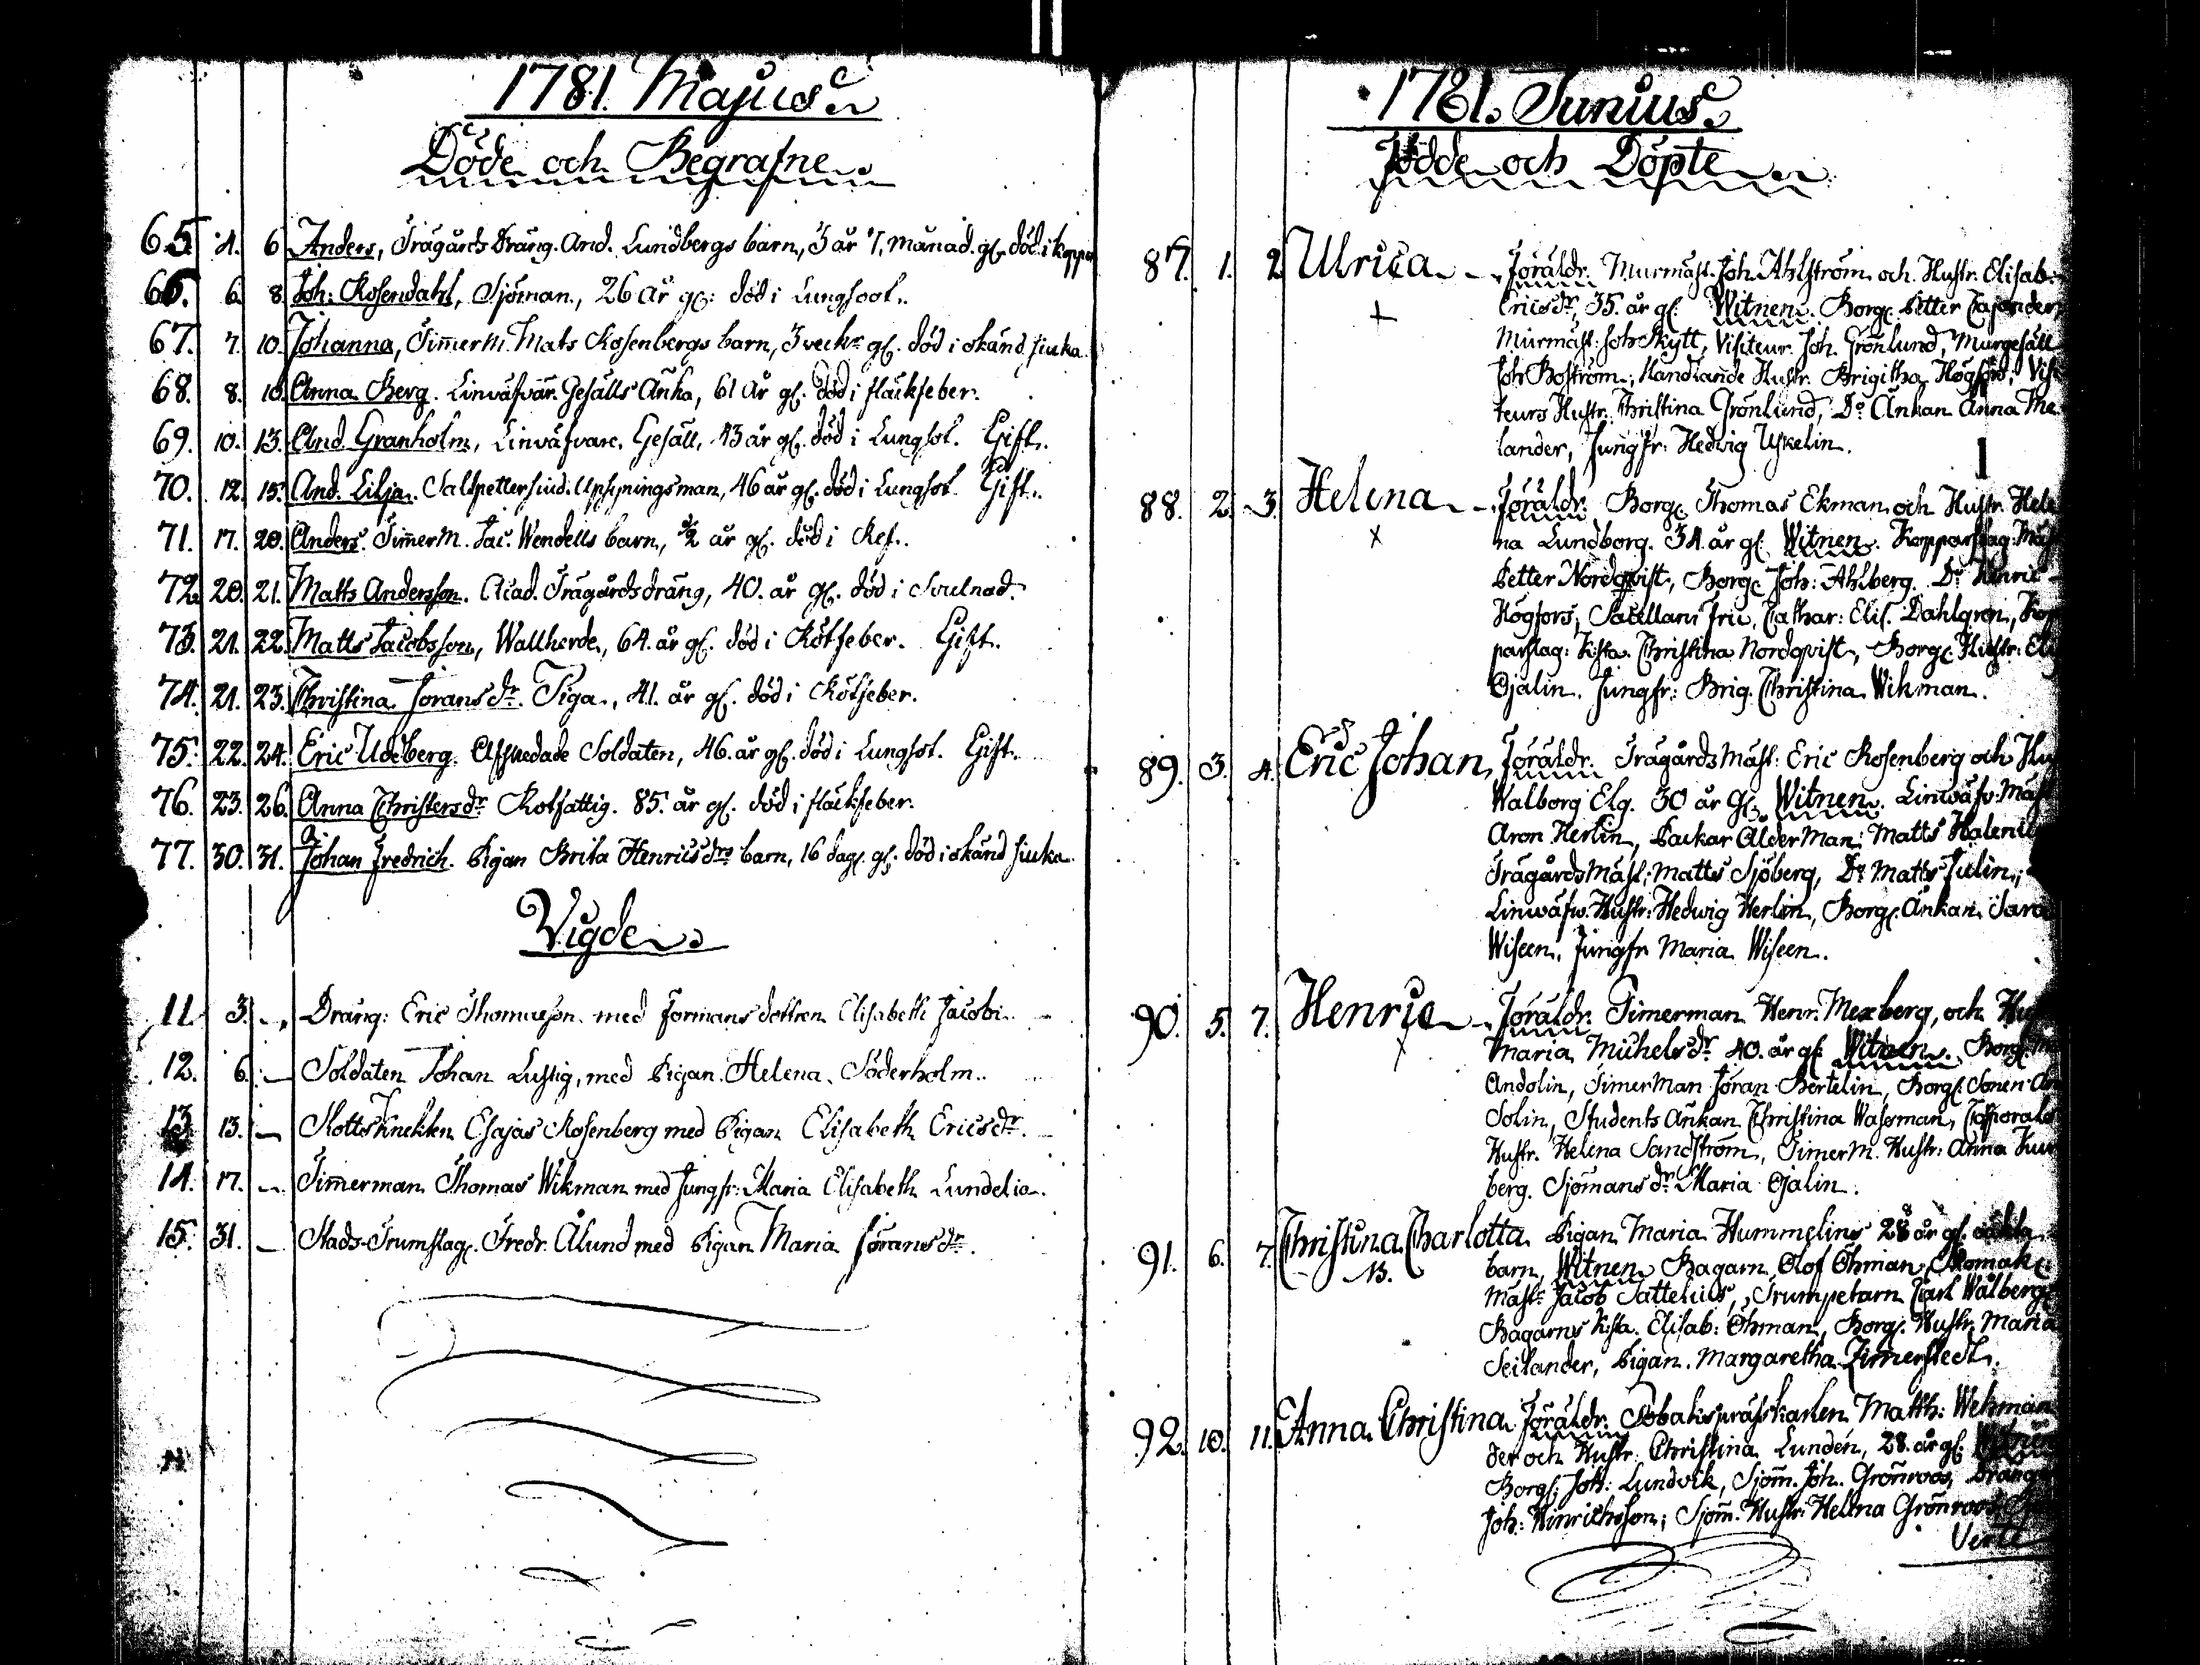 1781. Majus.
Döde och Begrafne.
65. 4. 6 Anders, Trägårds Dräng. And. Lundbergs barn, 3 år 7. månad. gl. död i koppor
66. 6. 8 Joh: Rosendahl, Sjöman, 26 år gl: död i Lungsoot.
67. 7. 10. Johanna, Timmerm. Mats Rosenbergs barn, 3 veckr gl. död i okänd siuka.
68. 8. 10. Anna Berg. Linväfvar Gesälls Änka, 61 år gl. död i fläckfeber.
69. 10. 13. And. Granholm, Linväfvare Gesäll, 43 år gl. död i Lungsot. Gift.
70. 12. 15. And. Lilja. Saltpettersiud. Upsyningsman, 46 år gl. död i Lungsot. Gift.
71. 17. 20. Anders. Timmerm. Jac. Wendells barn, ½ år gl. död i Ref.
72. 20. 21. Matts Andersson. Acad. Trägårdsdräng, 40. år gl. död i Svulnad.
73. 21. 22. Matts Jacobsson, Wallherde, 64. år gl. död i Rötfeber. Gift.
74. 21. 23. Christina Jöransdr. Piga, 41. år gl. död i Rötfeber.
75. 22. 24. Eric Udeberg. Afskedade Soldaten, 46. år gl. död i Lungsot. Gift.
76. 23. 26. Anna Christersdr Rotfattig. 85. år gl. död i fläckfeber.
77. 30. 31. Johan Fredrich. Pigan Brita Henricsdrs barn, 16 dag. gl. död i okänd siuka.
Vigde.
11. 3. Dräng: Eric Thomasson med Formans dottren Elisabeth Jacobi.
12. 6. Soldaten Johan Lustig, med Pigan Helena Söderholm.
13. 13. Slotts Knekten Esajas Rosenberg med Pigan Elisabeth Ericsdr.
14. 17. Timmerman Thomas Wikman med Jungfr: Maria Elisabeth Lundelia.
15. 31. Stads-Trumslag. Fredr. Ålund med Pigan Maria Jöransdr.
1781. Junius.
Födde och Döpte.
87. 1. 2. Ulrica. Föräldr. Murmäst. Joh. Ahlström och Hustr. Elisab.
Ericsdr, 35. år gl. Witnen. Borg. Petter Cajander,
Murmäst. Joh Skytt, Visiteur. Joh. Grönlund, Murgesäll
Joh Boström, Handlande Hustr. Brigitha Högfors, Visi
teurs Hustr. Christina Grönlund, Do Änkan Anna Me
lander, Jungfr: Hedvig Uskelin.
88. 2. 3. Helena. Föräldr. Borg. Thomas Ekman och Hustr. Hele
na Lundborg. 34. år gl. Witnen. Kopparslag: Mäst
Petter Nordqvist, Borg. Joh: Ahlberg. Do Henric
Högfors, Sacellans fru, Cathar: Elis. Dahlgren, Kop
parslag: K:sta. Christina Nordqvist, Borg. Hustr: Elis
Öjalin. Jungfr: Brig. Christina Wikman.
89. 3. 4. Eric Johan, Föräldr. TrägårdsMäst: Eric Rosenberg och Hu
Walborg Elg. 30 år gl. Witnen. Linwäfv: Mäst
Aron Herlin, Packar ÅlderMan: Matts Halenius
TrägårdsMäst: Matts Sjöberg, Do Matts Julin,
Linwäfv. Hustr: Hedwig Herlin, Borg. Änkan Sara
Wiseen. Jungfr Maria Wiseen.
90. 5. 7. Henric. Föräldr. Timerman Henr. Mexberg, och Hu
Maria Michelsdr. 40. år gl. Witnen. Borg.
Andolin, Timerman Jöran Bertelin, Borg. Sonen
Solin, Students änkan Christina Wassman, Corporals
Hustr. Helena Sandström, Timerm. Hustr: Anna
berg. Sjömansdr Maria Öjalin.
91. 6. 7. Christina Charlotta. Pigan Maria Hummelins 28 år gl. oäkta
N.
barn, Witnen Bagarn Olof Öhman, Skomak:
Mäst: Jacob Sattelius, Trumpetarn Carl Wålberg
Bagarns K:sta. Elisab: Öhman, Borg. Hustr. Maria
Seilander, Pigan. Margaretha Zimerstedt.
92. 10. 11. Anna Christina. Föräldr. Tobaksprässkarlen Matth: Wekman
der och Hustr. Christina Lundén, 28. år gl. Witnen
Borg: Joh: Lundvik, Sjöm. Joh. Grönroos, Dräng
Joh: Hinrichsson; Sjöm. Hustr: Helena Grönroos
Verte